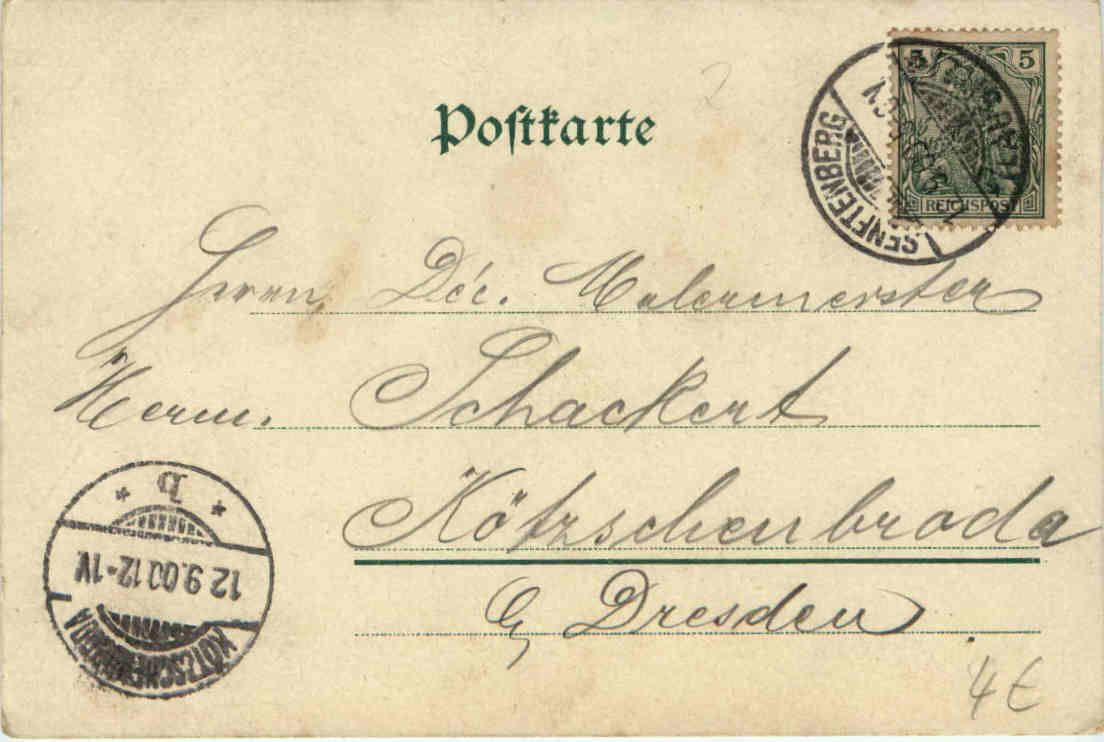 Postkarte
5 5
REICHSPOST
SENFTENBERG
Herrn Malermeister
Herm. Schackert
Kötzschenbroda
b/ Dresden
* b *
12.9.00.12-1V.
KÖTZSCHENBRODA
4€